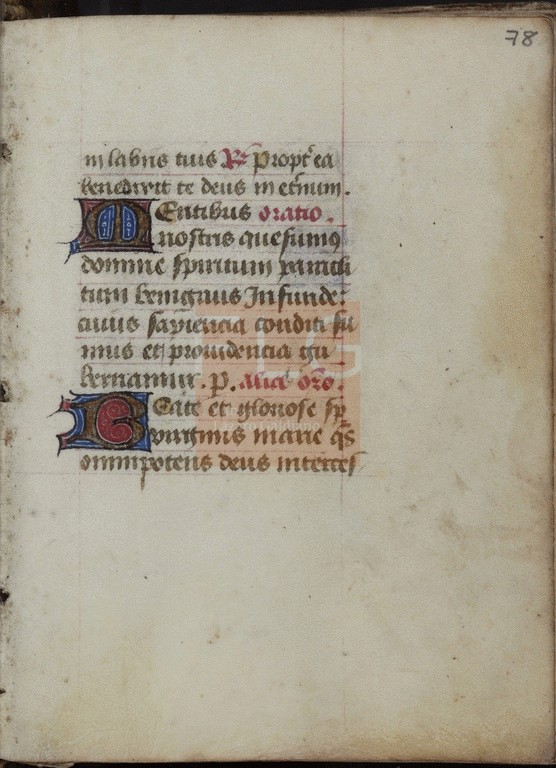 78
in labiis tuis R. Propt̃ea
benedixit te deus in et̃num.
Mentibus oratio.
nostris quesumꝰ
domine spiritum paracli
tum benignus Infunde.
cuius sapiencia conditi su
mus et prouidencia gu
bernamur. P. alia oro.
Beate et gloriose sp̃
virginis marie q̃s
omnipotens deus interces
FLG
Lázaro Galdiano